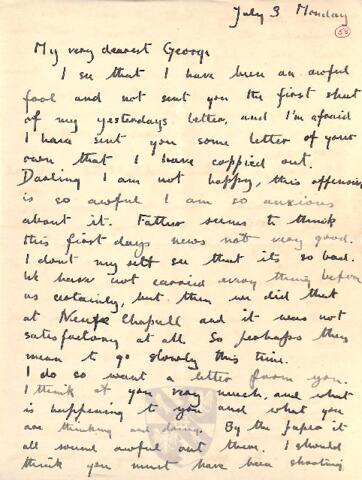 July 3 Monday
58
My very dearest George
I see that I have been an awful
fool and not sent you the first sheet
of my yesterdays letter, and I'm afraid
I have sent you some letter of your
own that I have coppied out.
Darling I am not happy, this offensive
is so awful I am so anxious
about it. Father seems to think
this first days news not very good.
I dont my self see that its so bad.
We have not carried every thing before
us certainly, but then we did that
at Neuve Chapell and it was not
satisfactory at all. So perhaps they
mean to go slowly this time.
I do so want a letter from you.
I think of you very much, and what
is happening to you and what you
are thinking and doing. By the papea it
all sound awful out there. I should
think you must have been shooting